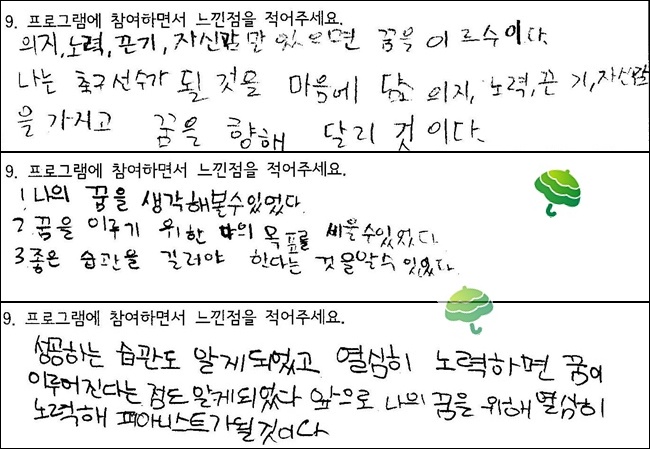 9. 프로그램에 참여하면서 느낀점을 적어주세요.
의지,노력,끈기,자신감만 있으면 꿈을 이르수이다.
나는 축구선수가 될 것을 마음에 담고 의지,노력,끈기,자신감
을 가지고 꿈을 향해 달리 것이다.
9. 프로그램에 참여하면서 느낀점을 적어주세요.
1.나의 꿈을 생각해볼수있었다.
2.꿈을 이루기 위한 나의 목표를 세울수있었다.
3.좋은 습관을 길러야 한다는 것을알수 있었다.
9. 프로그램에 참여하면서 느낀점을 적어주세요.
성공하는 습관도 알게되었고 열심히 노력하면 꿈이
이루어진다는 점도 알게되었다 앞으로 나의 꿈을 위해 열심히
노력해 피아니스트가될것이다